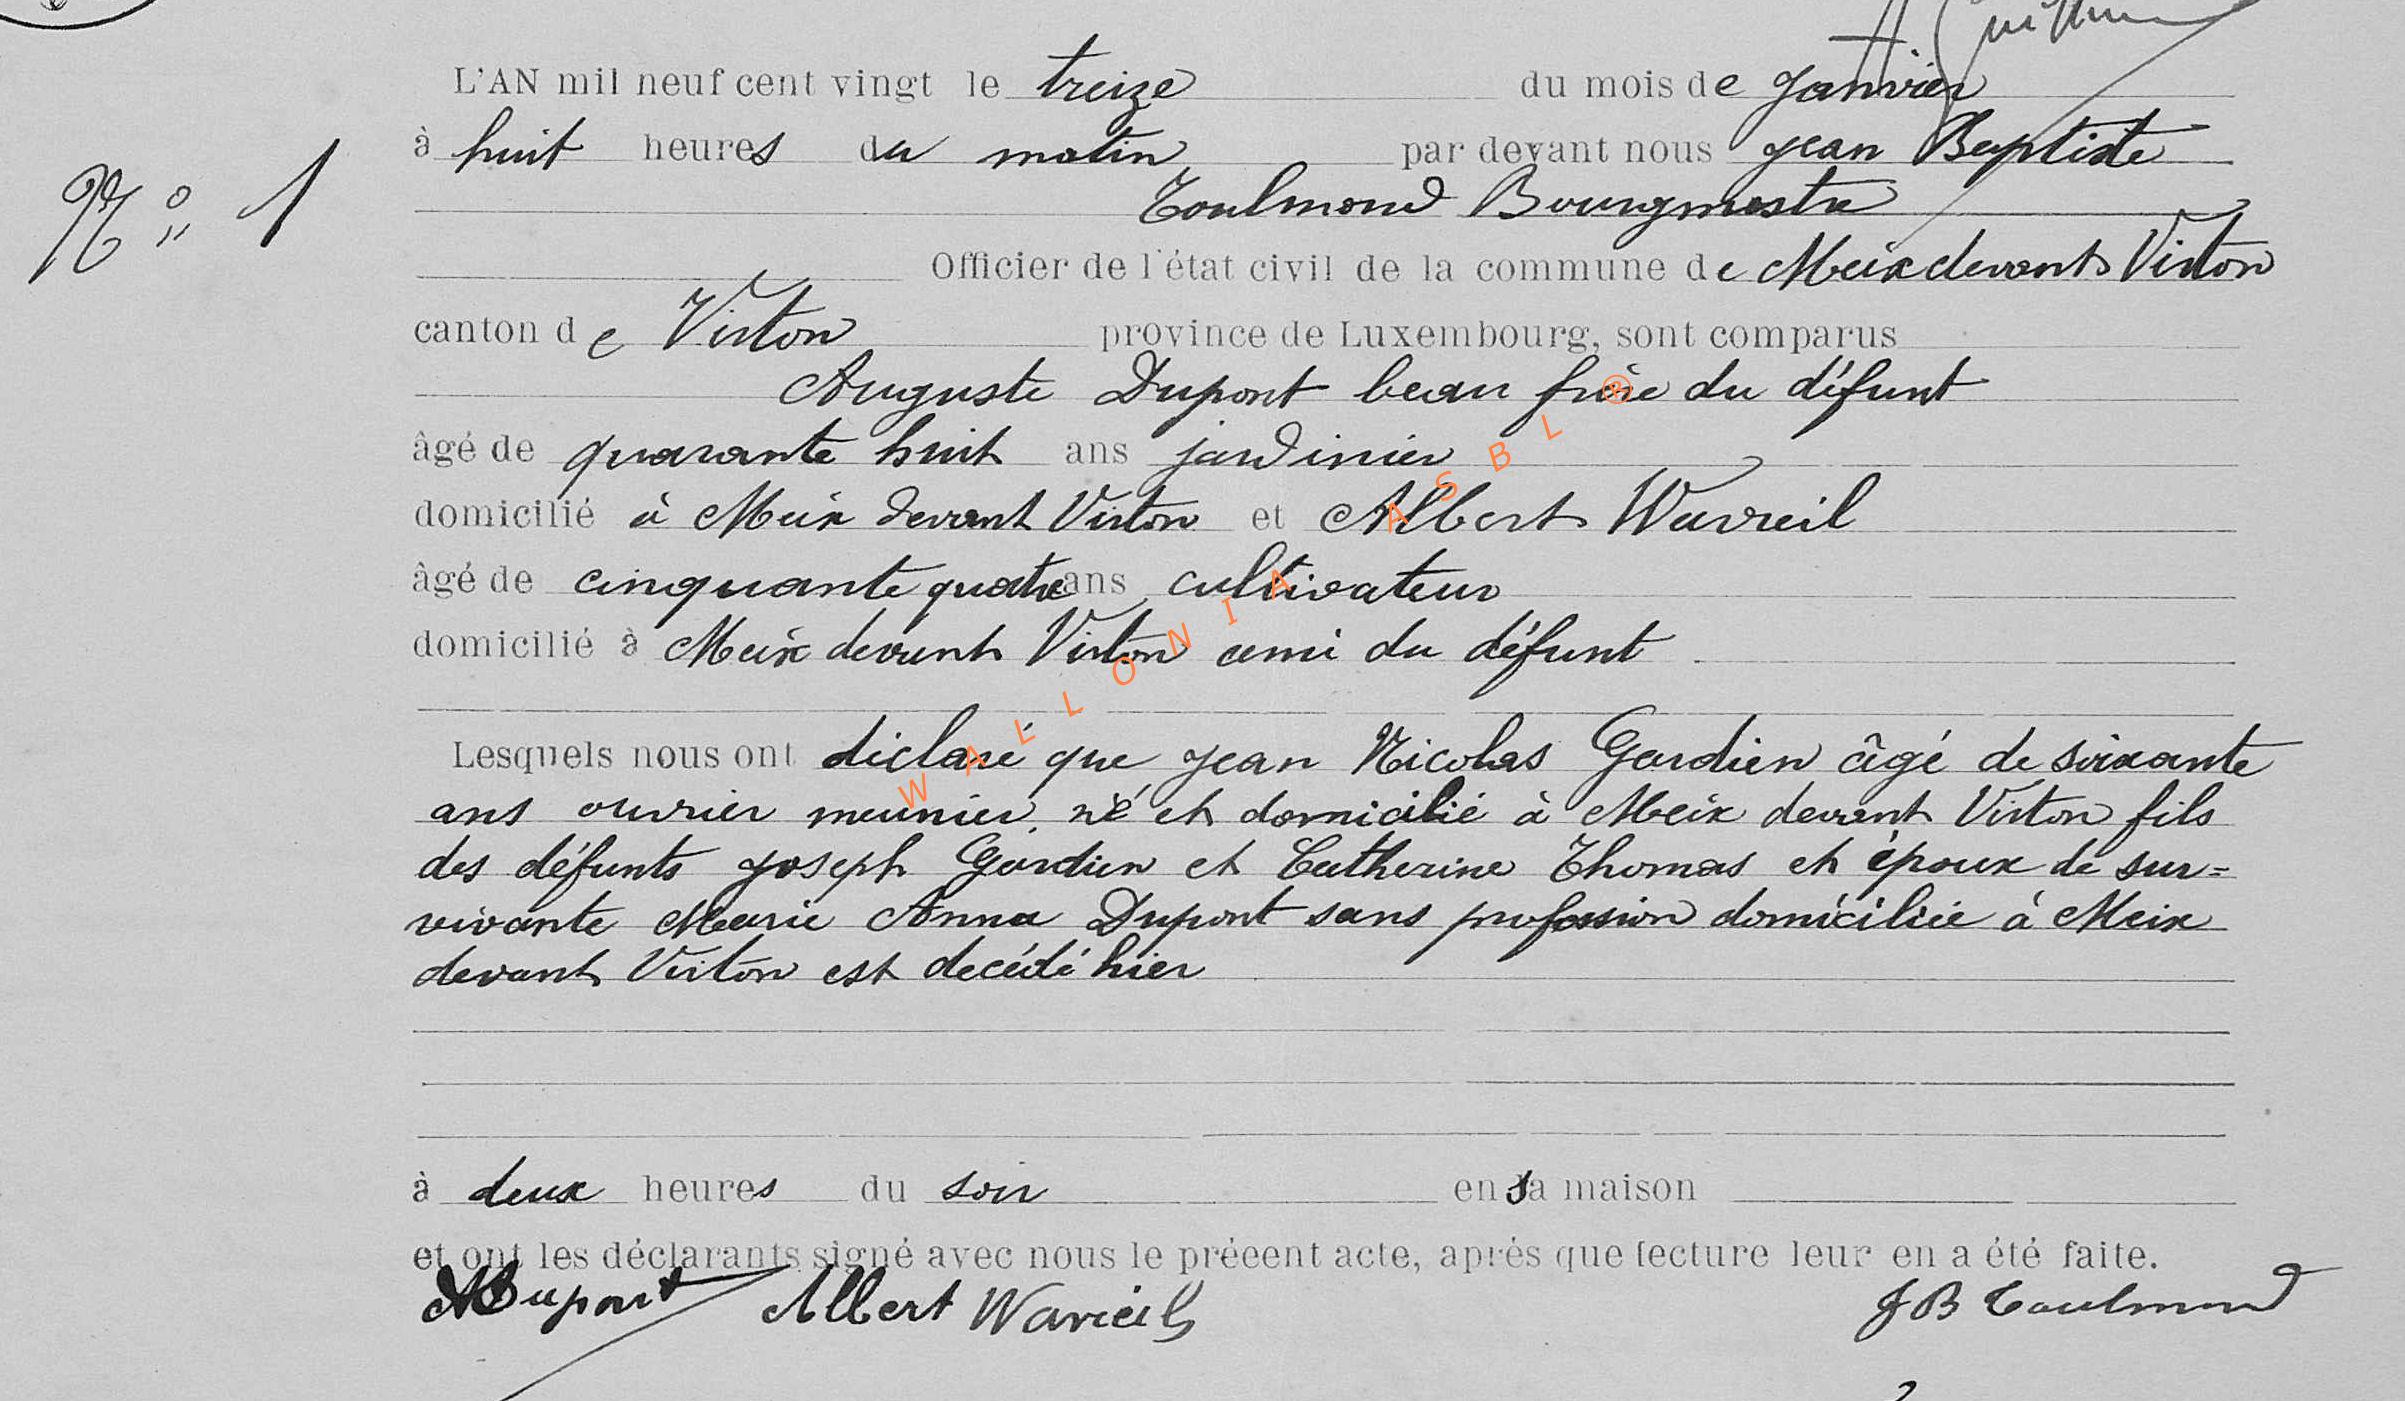 L'AN mil neuf cent vingt le treize du mois de Janvier
à huit heures du matin par devant nous Jean Baptiste
N° 1
Toulmond Bourgmestre
Officier de l'état civil de la commune de Meix devant Virton
canton de Virton province de Luxembourg, sont comparus
Auguste Dupont beau frère du défunt
âgé de quarante huit ans jardinier
domicilié à Meix devant Virton et Albert Wavreil
âgé de cinquante quatre ans cultivateur
domicilié à Meix devant Virton ami du défunt
Lesquels nous ont déclaré que Jean Nicolas Gardien âgé de soixante
ans ouvrier meunier, né et domicilié à Meix devant Virton fils
des défunts Joseph Gardien et Catherine Thomas et époux de sur=
vivante Marie Anna Dupont sans profession domiciliée à Meix
devant Virton est decédé hier
à deux heures du soir en sa maison
et ont les déclarants signé avec nous le préeent acte, après que lecture leur en a été faite.
ADupont Albert Wavreil JB Toulmond
WALLONIA ASBL ®